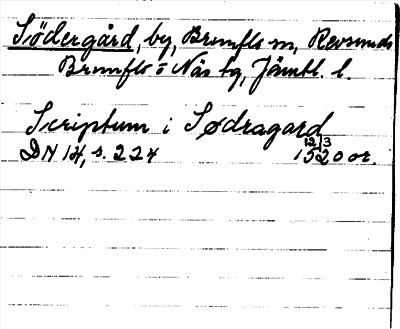 Södergård, by, Brunflo sn, Revsunds
Brunflo o Näs tg, Jämtl. l.
Scriptum i Sødragard
12/3
DN 14, s. 224 1520 or.